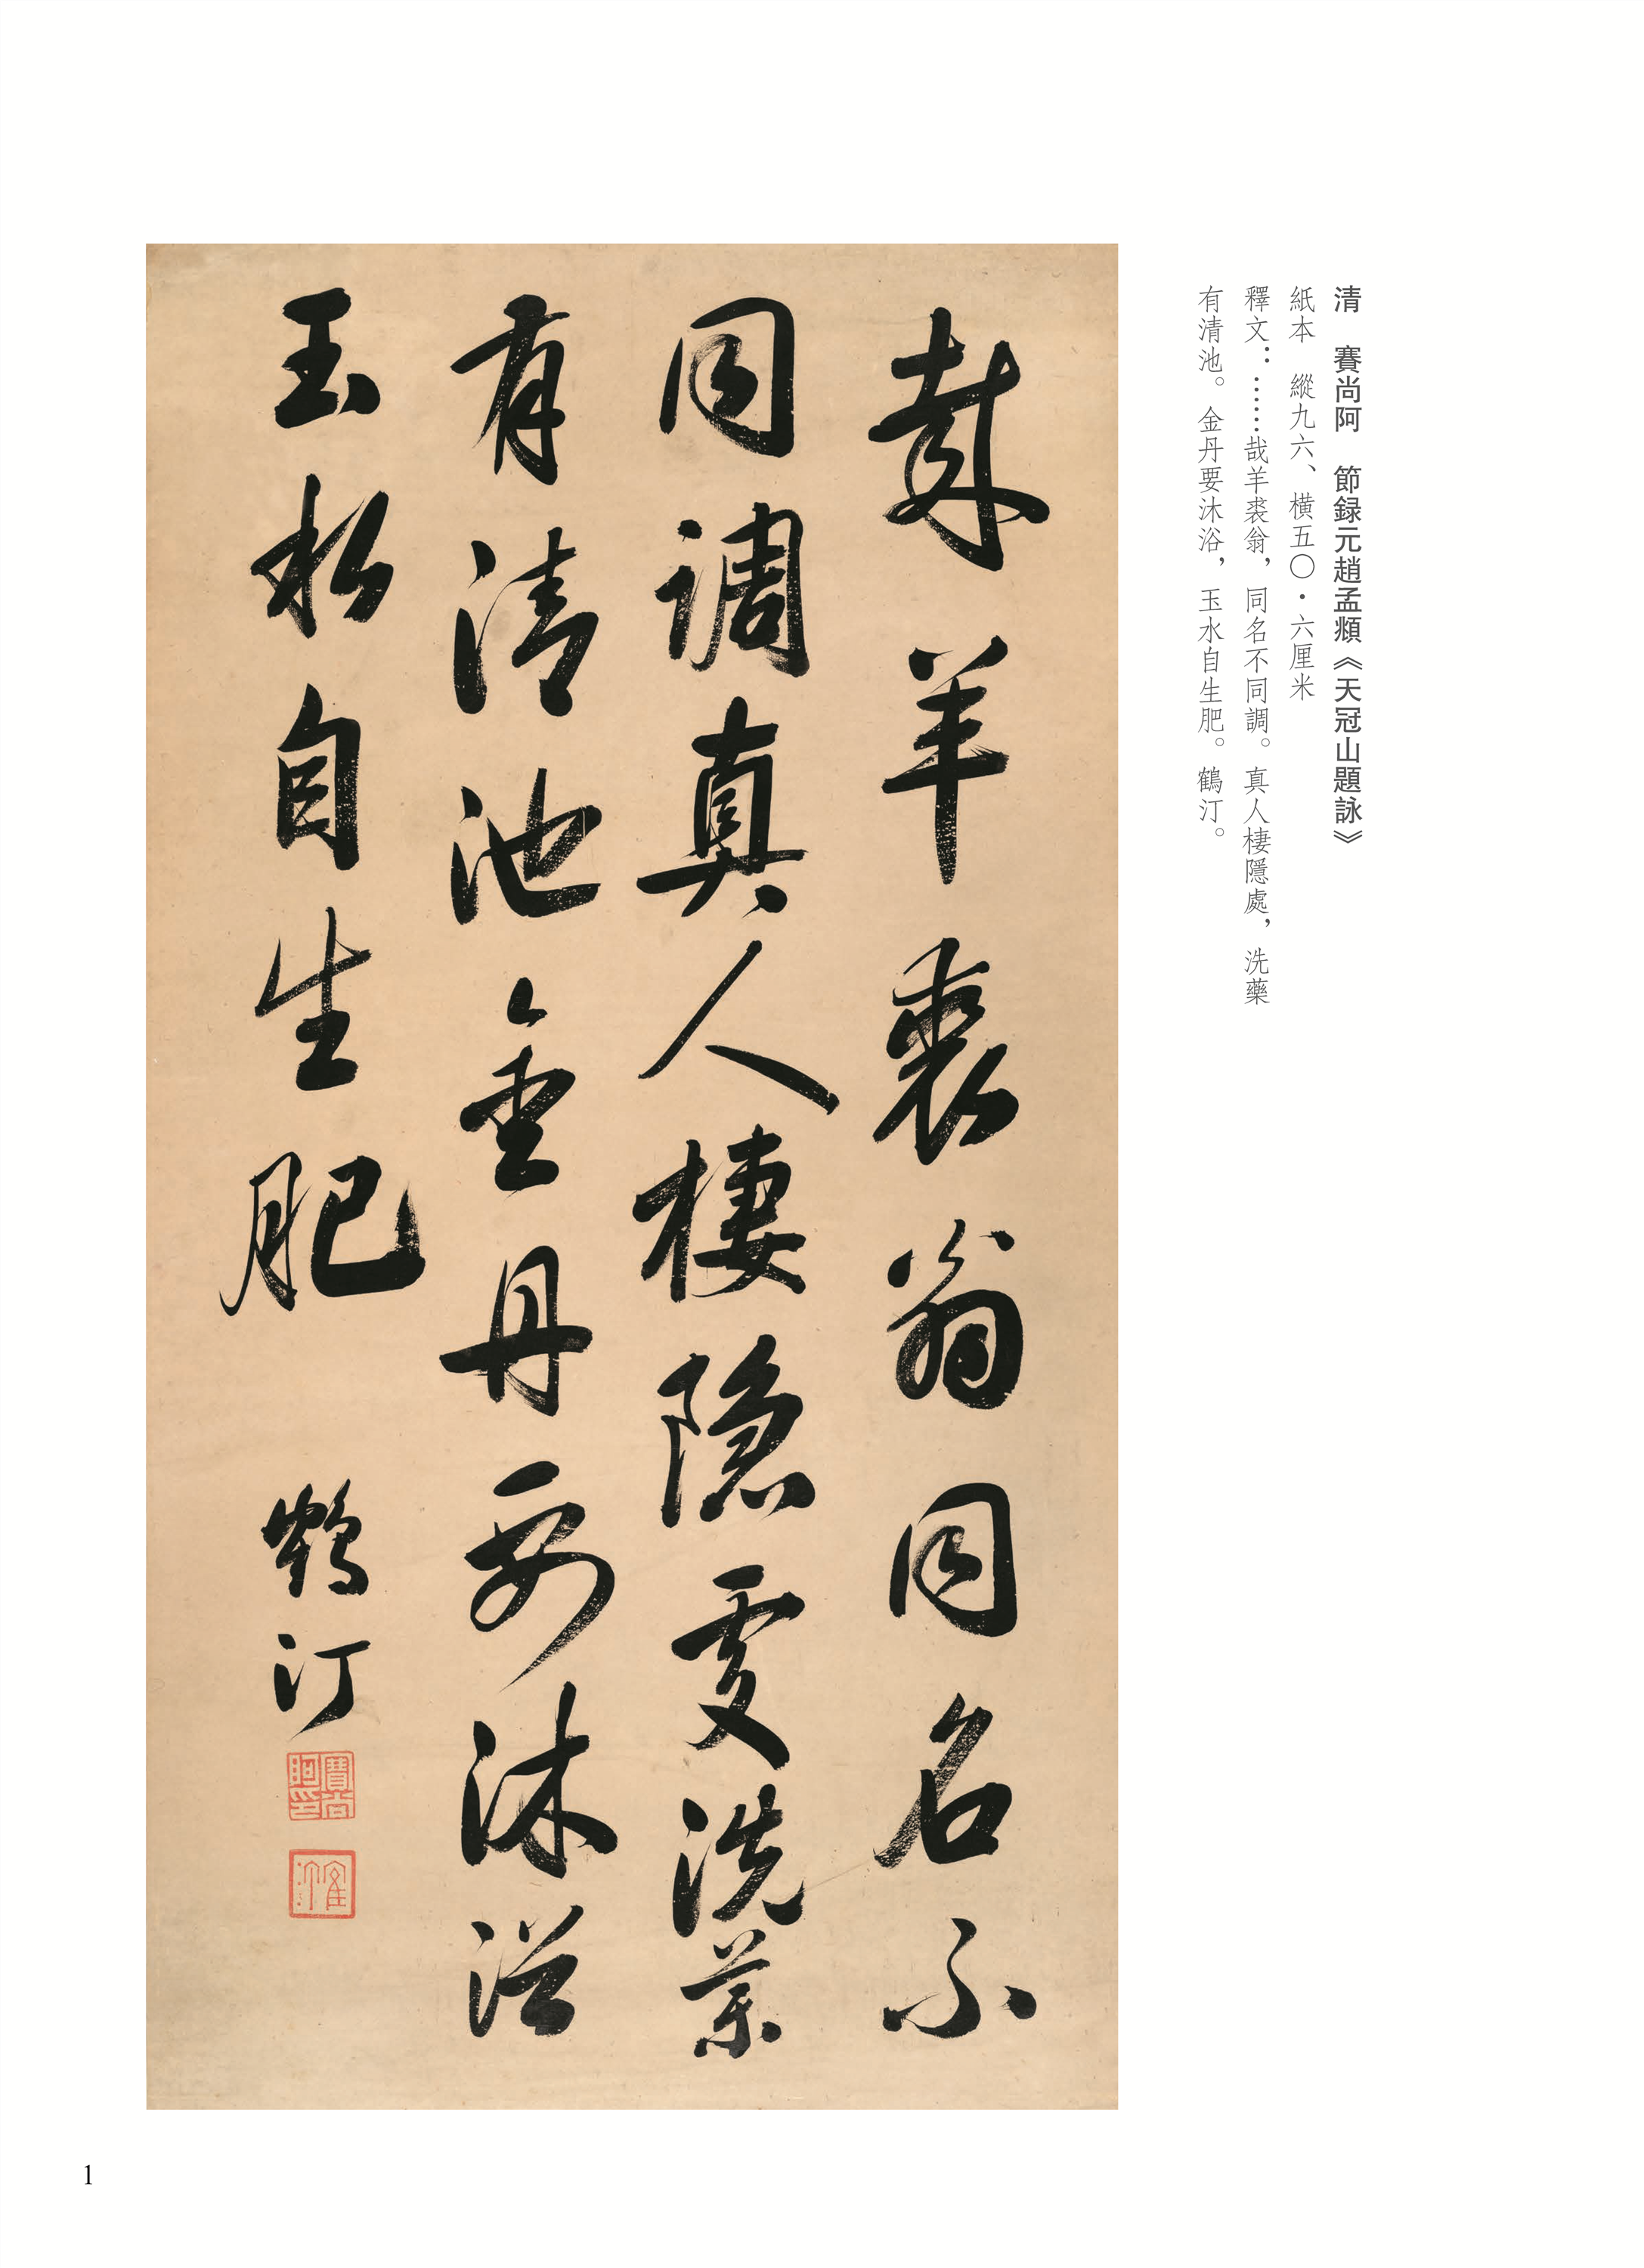 清　賽尚阿　節録元趙孟頫《天冠山題詠》
紙本　縱九六、橫五〇·六厘米
釋文：……哉羊裘翁，同名不同調。真人棲隱處，洗藥
有清池。金丹要沐浴，玉水自生肥。鶴汀。
哉羊裘翁同名不
同調真人棲隱處洗藥
有清池金丹要沐浴
玉水自生肥　鶴汀
賽尚阿印
1